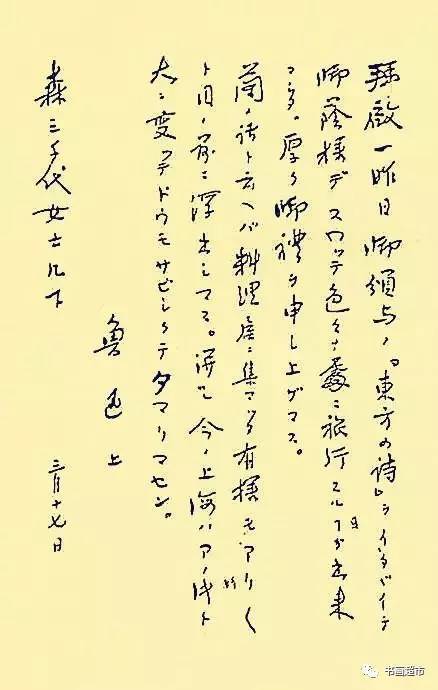 拝啓一昨日御頒与ノ『東方の詩』ヲイタゞイテ
御蔭様デスワッテ色々ナ處ニ旅行スルヿガ出来
マシタ。厚ク御禮ヲ申シ上ゲマス。
蘭ノ話ト云ヘバ料理屋ニ集マッタ有様モアリ〱
ト目ノ前ニ浮出シマス。併シ今ノ上海ハアノ時ト
大ニ変ッテドウモサビシクテタマリマセン。
魯迅 上
三月十七日
森三千代女士几下
书画超市